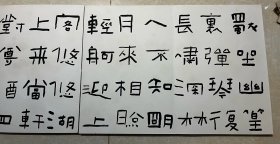 獨坐幽篁
裏彈琴復
長嘯深林
人不知明
月來相照
輕舸迎上
客悠悠湖
上來當軒
對尊酒四